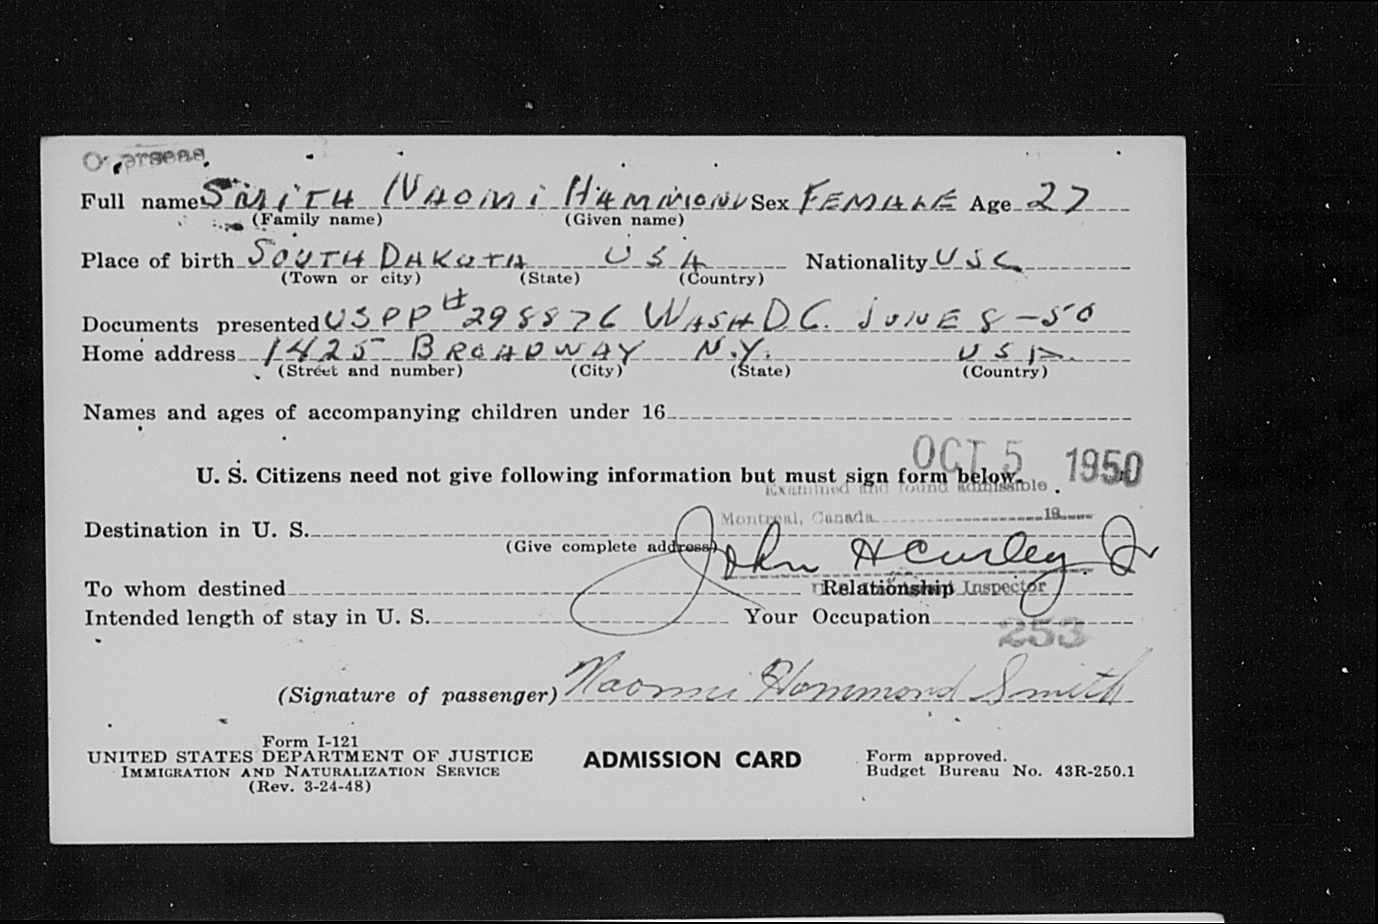 Overseas
Full name SMITH NAOMI HAMMOND Sex FEMALE Age 27
(Family name) (Given name)
Place of birth SOUTH DAKOTA USA Nationality USC
(Town or city) (State) (Country)
Documents presented USPP #298876 WASH D.C. JUNE 8-50
Home address 1425 BROADWAY N.Y. USA.
(Street and number) (City) (State) (Country)
Names and ages of accompanying children under 16
OCT 5 1950
U. S. Citizens need not give following information but must sign form below.
Examined and found admissible
Montreal, Canada 19
Destination in U. S.
(Give complete address)
John H Curley Jr
To whom destined Relationship
Inspector
Intended length of stay in U. S. Your Occupation
253
(Signature of passenger) Naomi Hammond Smith
Form I-121
UNITED STATES DEPARTMENT OF JUSTICE ADMISSION CARD Form approved.
IMMIGRATION AND NATURALIZATION SERVICE Budget Bureau No. 43R-250.1
(Rev. 3-24-48)